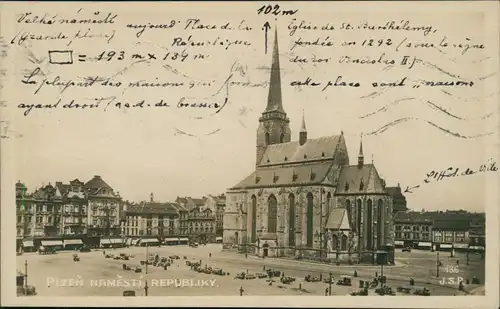 Velké náměstí
aujourd. Place de la République
(grande place)
= 193 m x 134 m
La plupart des maisons
cette place sont "maisons
ayant droit (
102 m
Église de St. Barthélemy
fondée en 1292 (sous le règne
du roi Venceslas II.)
L'Hôt. de Ville
PLZEŇ NÁMĚSTÍ REPUBLIKY.
136
J.S.P.